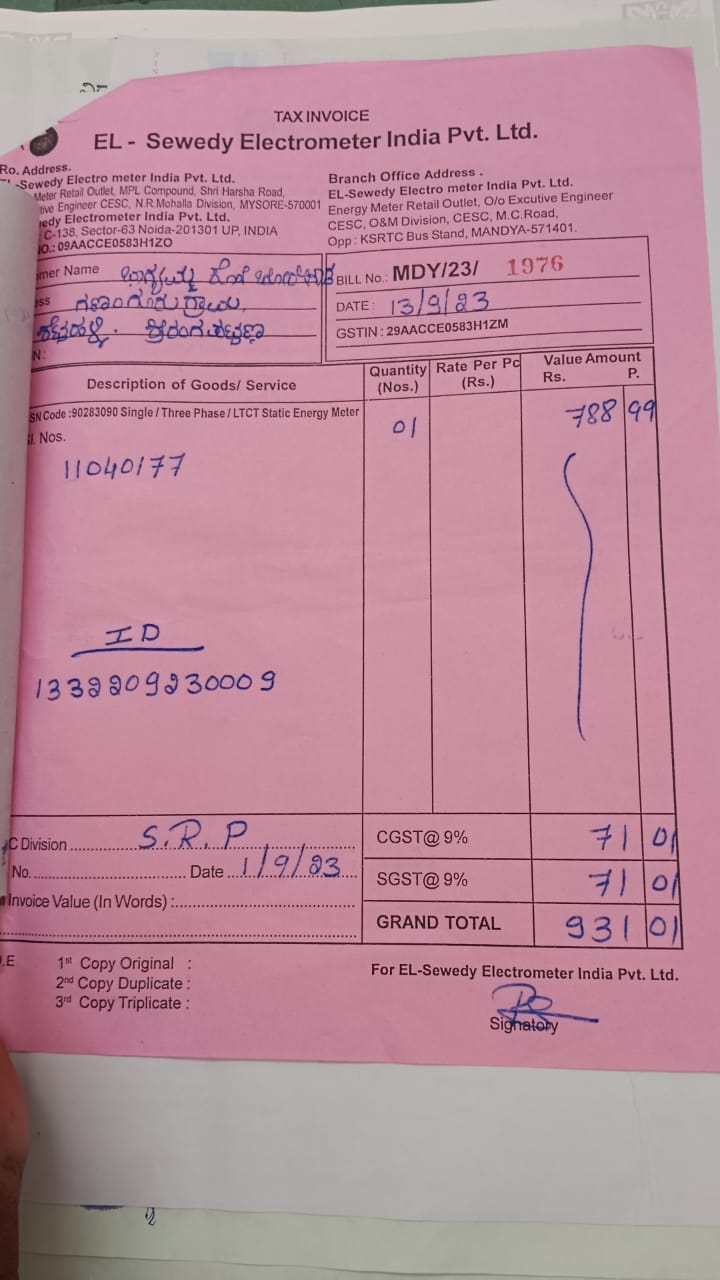 TAX INVOICE
EL - Sewedy Electrometer India Pvt. Ltd.
Ro. Address.
-Sewedy Electro meter India Pvt. Ltd.
Meter Retail Outlet, MPL Compound, Shri Harsha Road,
tive Engineer CESC, N.R.Mohalla Division, MYSORE-570001
edy Electrometer India Pvt. Ltd.
C-138, Sector-63 Noida-201301 UP, INDIA
NO.: 09AACCE0583H1ZO
Branch Office Address .
EL-Sewedy Electro meter India Pvt. Ltd.
Energy Meter Retail Outlet, O/o Excutive Engineer
CESC, O&M Division, CESC, M.C.Road,
Opp : KSRTC Bus Stand, MANDYA-571401.
mer Name
ess ಗ್ರಾಮ,
N:
BILL No.: MDY/23/ 1976
DATE : 13/9/23
GSTIN : 29AACCE0583H1ZM
Description of Goods/ Service
Quantity (Nos.)
Rate Per Pc (Rs.)
Value Amount
Rs. P.
SN Code :90283090 Single / Three Phase / LTCT Static Energy Meter 01 788 99
l. Nos.
11040177
ID
1332209230009
C Division S.R.P
No. Date 1/9/23
Invoice Value (In Words) :
CGST@ 9% 71 01
SGST@ 9% 71 01
GRAND TOTAL 931 01
.E 1st Copy Original :
2nd Copy Duplicate :
3rd Copy Triplicate :
For EL-Sewedy Electrometer India Pvt. Ltd.
Signatory